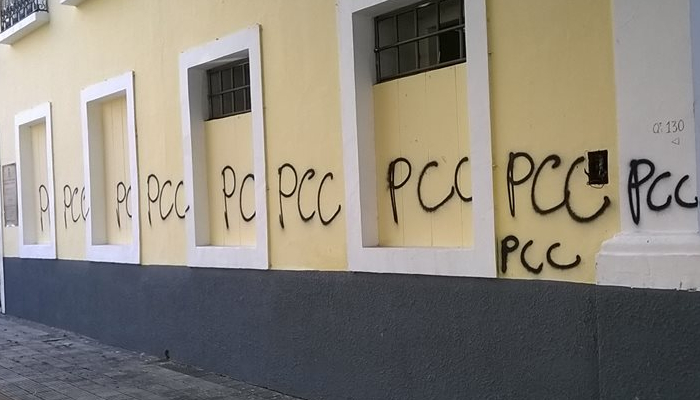 P PCC PC PCC PC PCC PCC PCC PCC
PCC
Q: 130